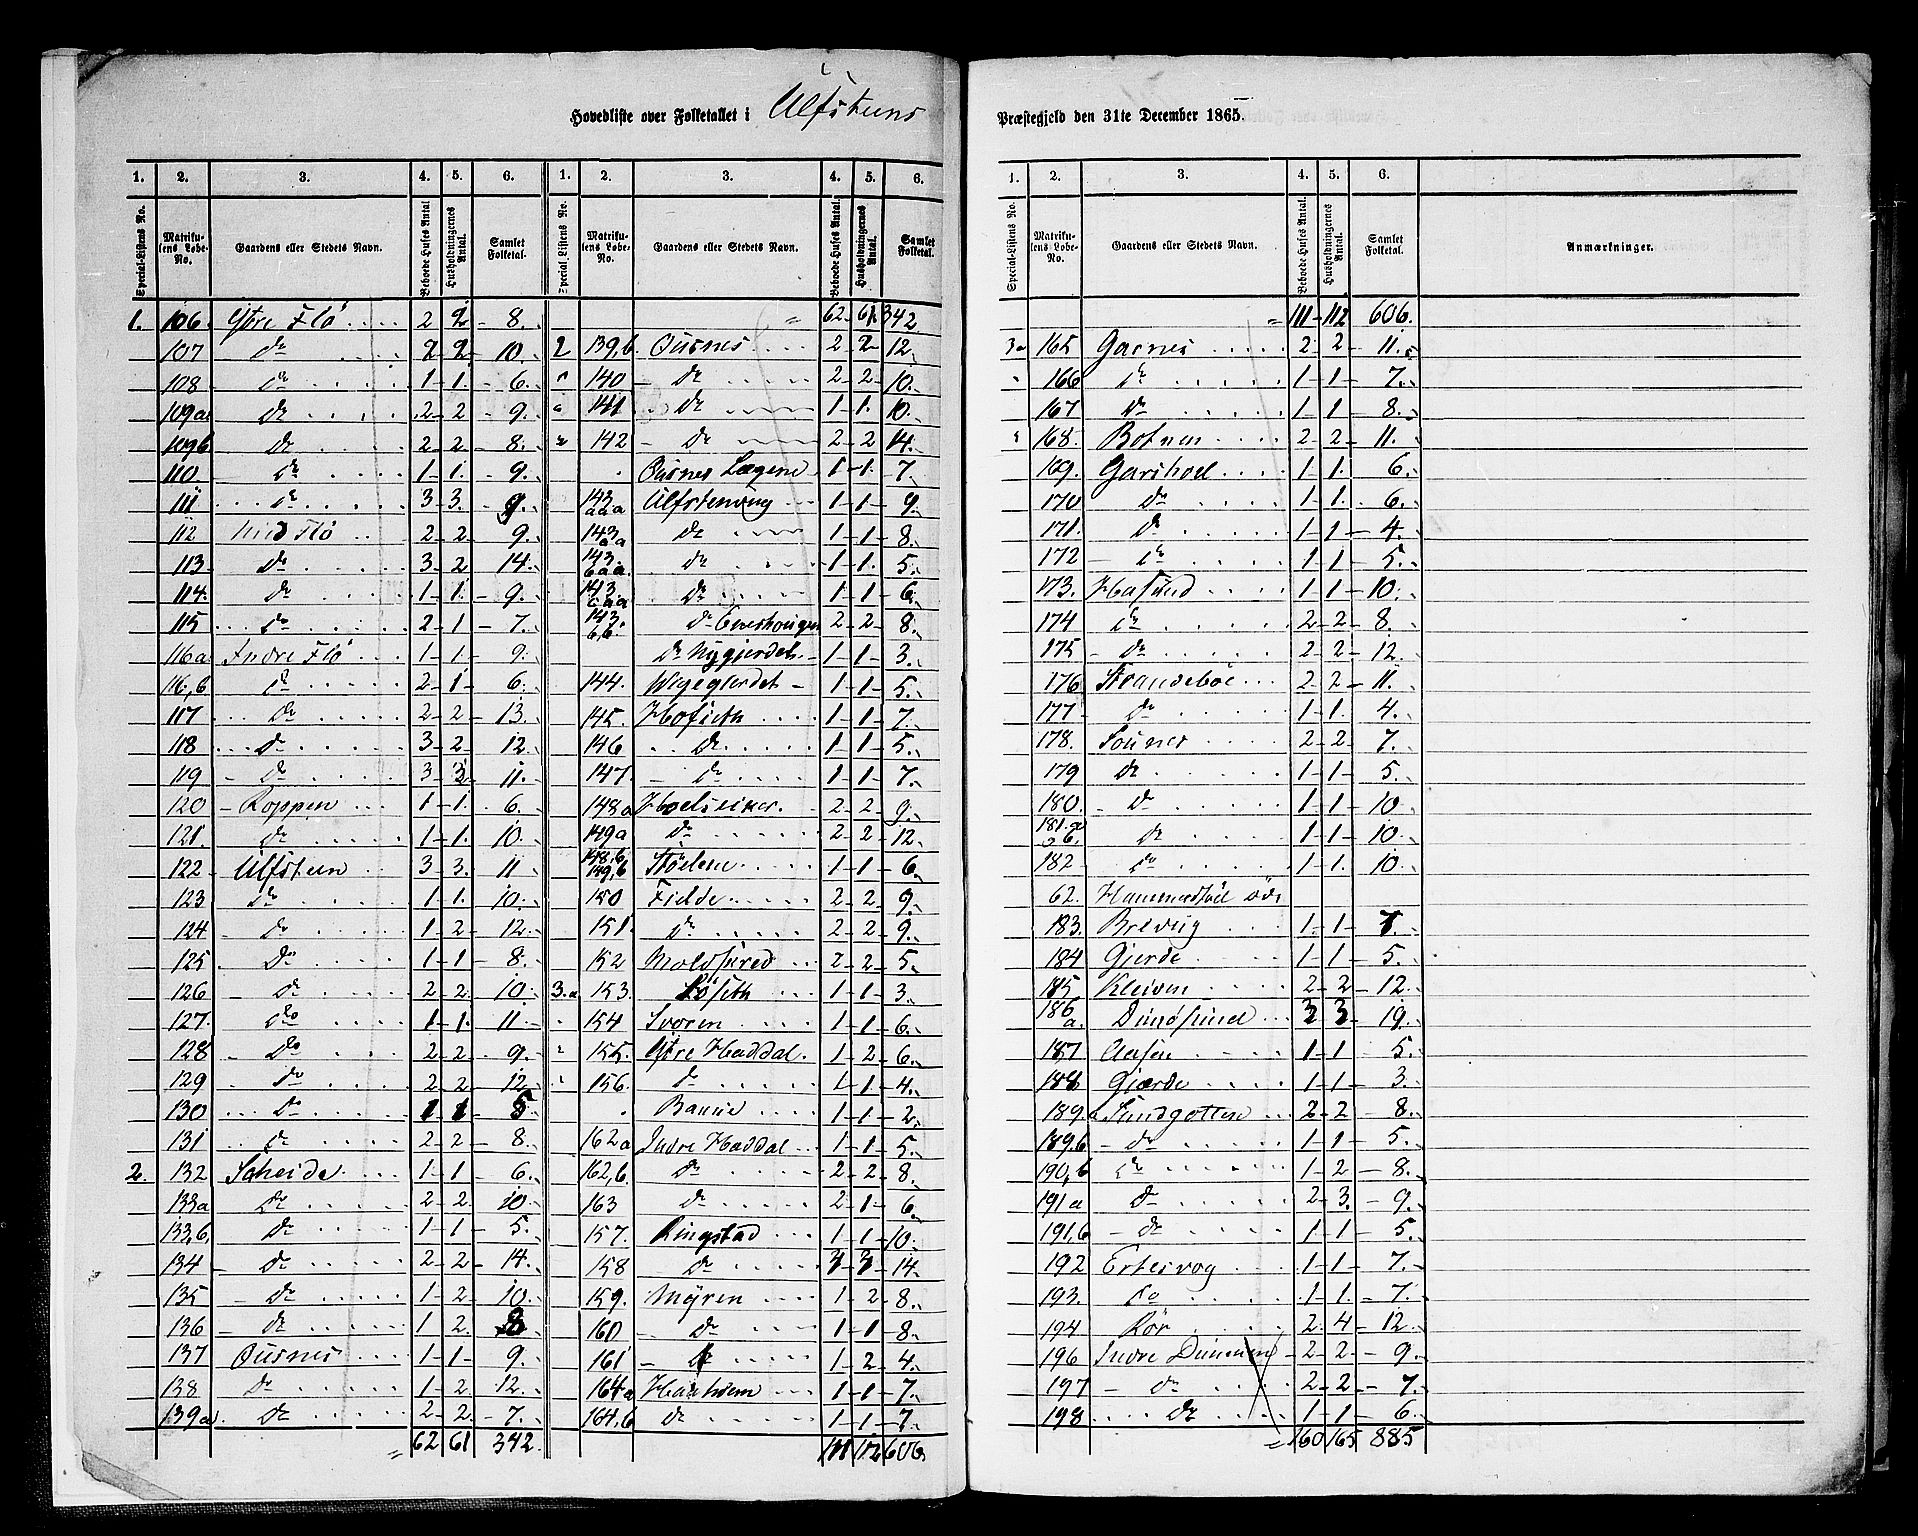 Hovedliste over Folketallet i Ulfsteens
1. 2. 3. 4. 5. 6. 1. 2. 3. 4. 5. 6.
Special-Listens No. Matrikulens Løbe-No. Gaardens eller Stedets Navn. Beboede Huses Antal Husholdningernes Antal. Samlet Folketal. Special-Listens No. Matrikulens Løbe-No. Gaardens eller Stedets Navn. Beboede Huses Antal. Husholdningernes Antal. Samlet Folketal.
1. 106. Ytre Flö 2 2 8.
107 do 2 2 10.
108 do 1 1. 6.
109a do 2 2 9.
109b do 2 2 8.
110. do 1 1. 9.
111 do 3 3. 9.
112 Mid Flö 2 2 9.
113. do 3 2 14.
114. do 1 1. 9.
115 do 2 1 7.
116a Indre Flö 1 1 9.
116,b do 2 1 6.
117 do 2 2 13.
118 do 3 2 12.
119 do 3 3 11.
120 Roppen 1 1. 6.
121. do 1 1. 10.
122 Ulfsteen 3 3. 11
123 do 1 1. 10.
124 do 1 2 12.
125 do 1 1 8.
126 do 2 2 10.
127. do 1 1. 11.
128 do 2 2 9.
129 do 2 2 12
130 do 1 1 5
131 do 2 2 8.
2. 132 Scheide 1 1 6.
133a do 2 2 10.
133,b, do 1 1 5.
134 do 2 2 14.
135 do 1 2 10.
136 do 1 2. 8
137 Ousnes 1 1 9.
138 do 1 2 12.
139a do 2 2. 7.
= 62 61 342.
= 62 61. 342
2 139,b Ousnes 2 2 12.
140 do 2 2 10.
141 do 1 1. 10.
142 do 2 2 14.
Ousnes Lægene 1 1. 7.
143 aaa Ulfstenvug 1 1 9.
143 a a do 1 1 8.
143 baa do 1 1. 5.
143. caa do 1 1 6.
143. b,b. do 2 2 8.
do Nygjerdet 1 1 3.
144. Wigegjerdet 1 1 5.
145. Hofseth 1 1 7.
146 do 1 1 5.
147. do 1 1 7.
148a Hoelseker. 2 2 9.
149a do 2 2 12.
148,b 149,b Stöelene 1 1 6.
150 Fielde 2 2 9.
151. do 2 2 9.
152 Moldsured 2 2 5.
3.a 153. Löseth 1 1 3.
154 Svoren 1 1 6.
155. Ytre Haddal. 1 2 6.
156. do 1 1 4.
Banne 1 1. 2.
162a Indre Haddal 1 1 5.
162,b. do 2 2 8.
163 do 2 1 6.
157. Ringstad 1 1 10.
158 do 3 3 14.
159. Myren 1 2 8.
160 do 1 1 8.
161 do 1 2 4.
164a Hareholm 1 1 7.
164,b do 1 1 7.
111 112 606
Præstegjeld den 31te December 1865.
1. 2. 3. 4. 5. 6.
Special-Listens No. Matrikulens Løbe-No. Gaardens eller Stedets Navn. Beboede Huses Antal. Husholdningernes Antal. Samlet Folketal. Anmærkninger.
= 111 112 606.
3a 165 Garnes 2 2 11.
166 do 1 1 7.
167 do 1 1 8.
168. Botnen 2 2 11.
169. Garshoel 1 1. 6.
170 do 1 1. 6.
171. do 1 1 4.
172 do 1 1 5.
173. Hasund 1 1 10.
174 do 2 2 8.
175 do 2 2 12.
176 Strandeböe 2 2 11.
177 do 1 1. 4.
178. Sounes 2 2 7.
179 do 1 1 5.
180. do 1 1 10
181.a do 1 1 10
182 do 1 1. 10
62. Hammerstöel öde
183. Brevug 1 1 7.
184 Gjerde 1 1 5.
185 Kleiven 2 2 12.
186 a. Dimösund 3 3 19.
187 Aasen 1 1 5.
188 Gjærde 1 1 3.
189.a Sundgotten 2 2 8.
189,b do 1 1 5.
190,b do 1 2 8.
191a do 2 3. 9.
191,b do 1 1 5.
192 Ertesvog 1 1 7.
193. do 1 1. 7.
194 Rör 2. 4 12.
196 Indre Dimmen 2 2. 9.
197 do 2 2 7.
198 do 1 1 6.
= 160 165 885